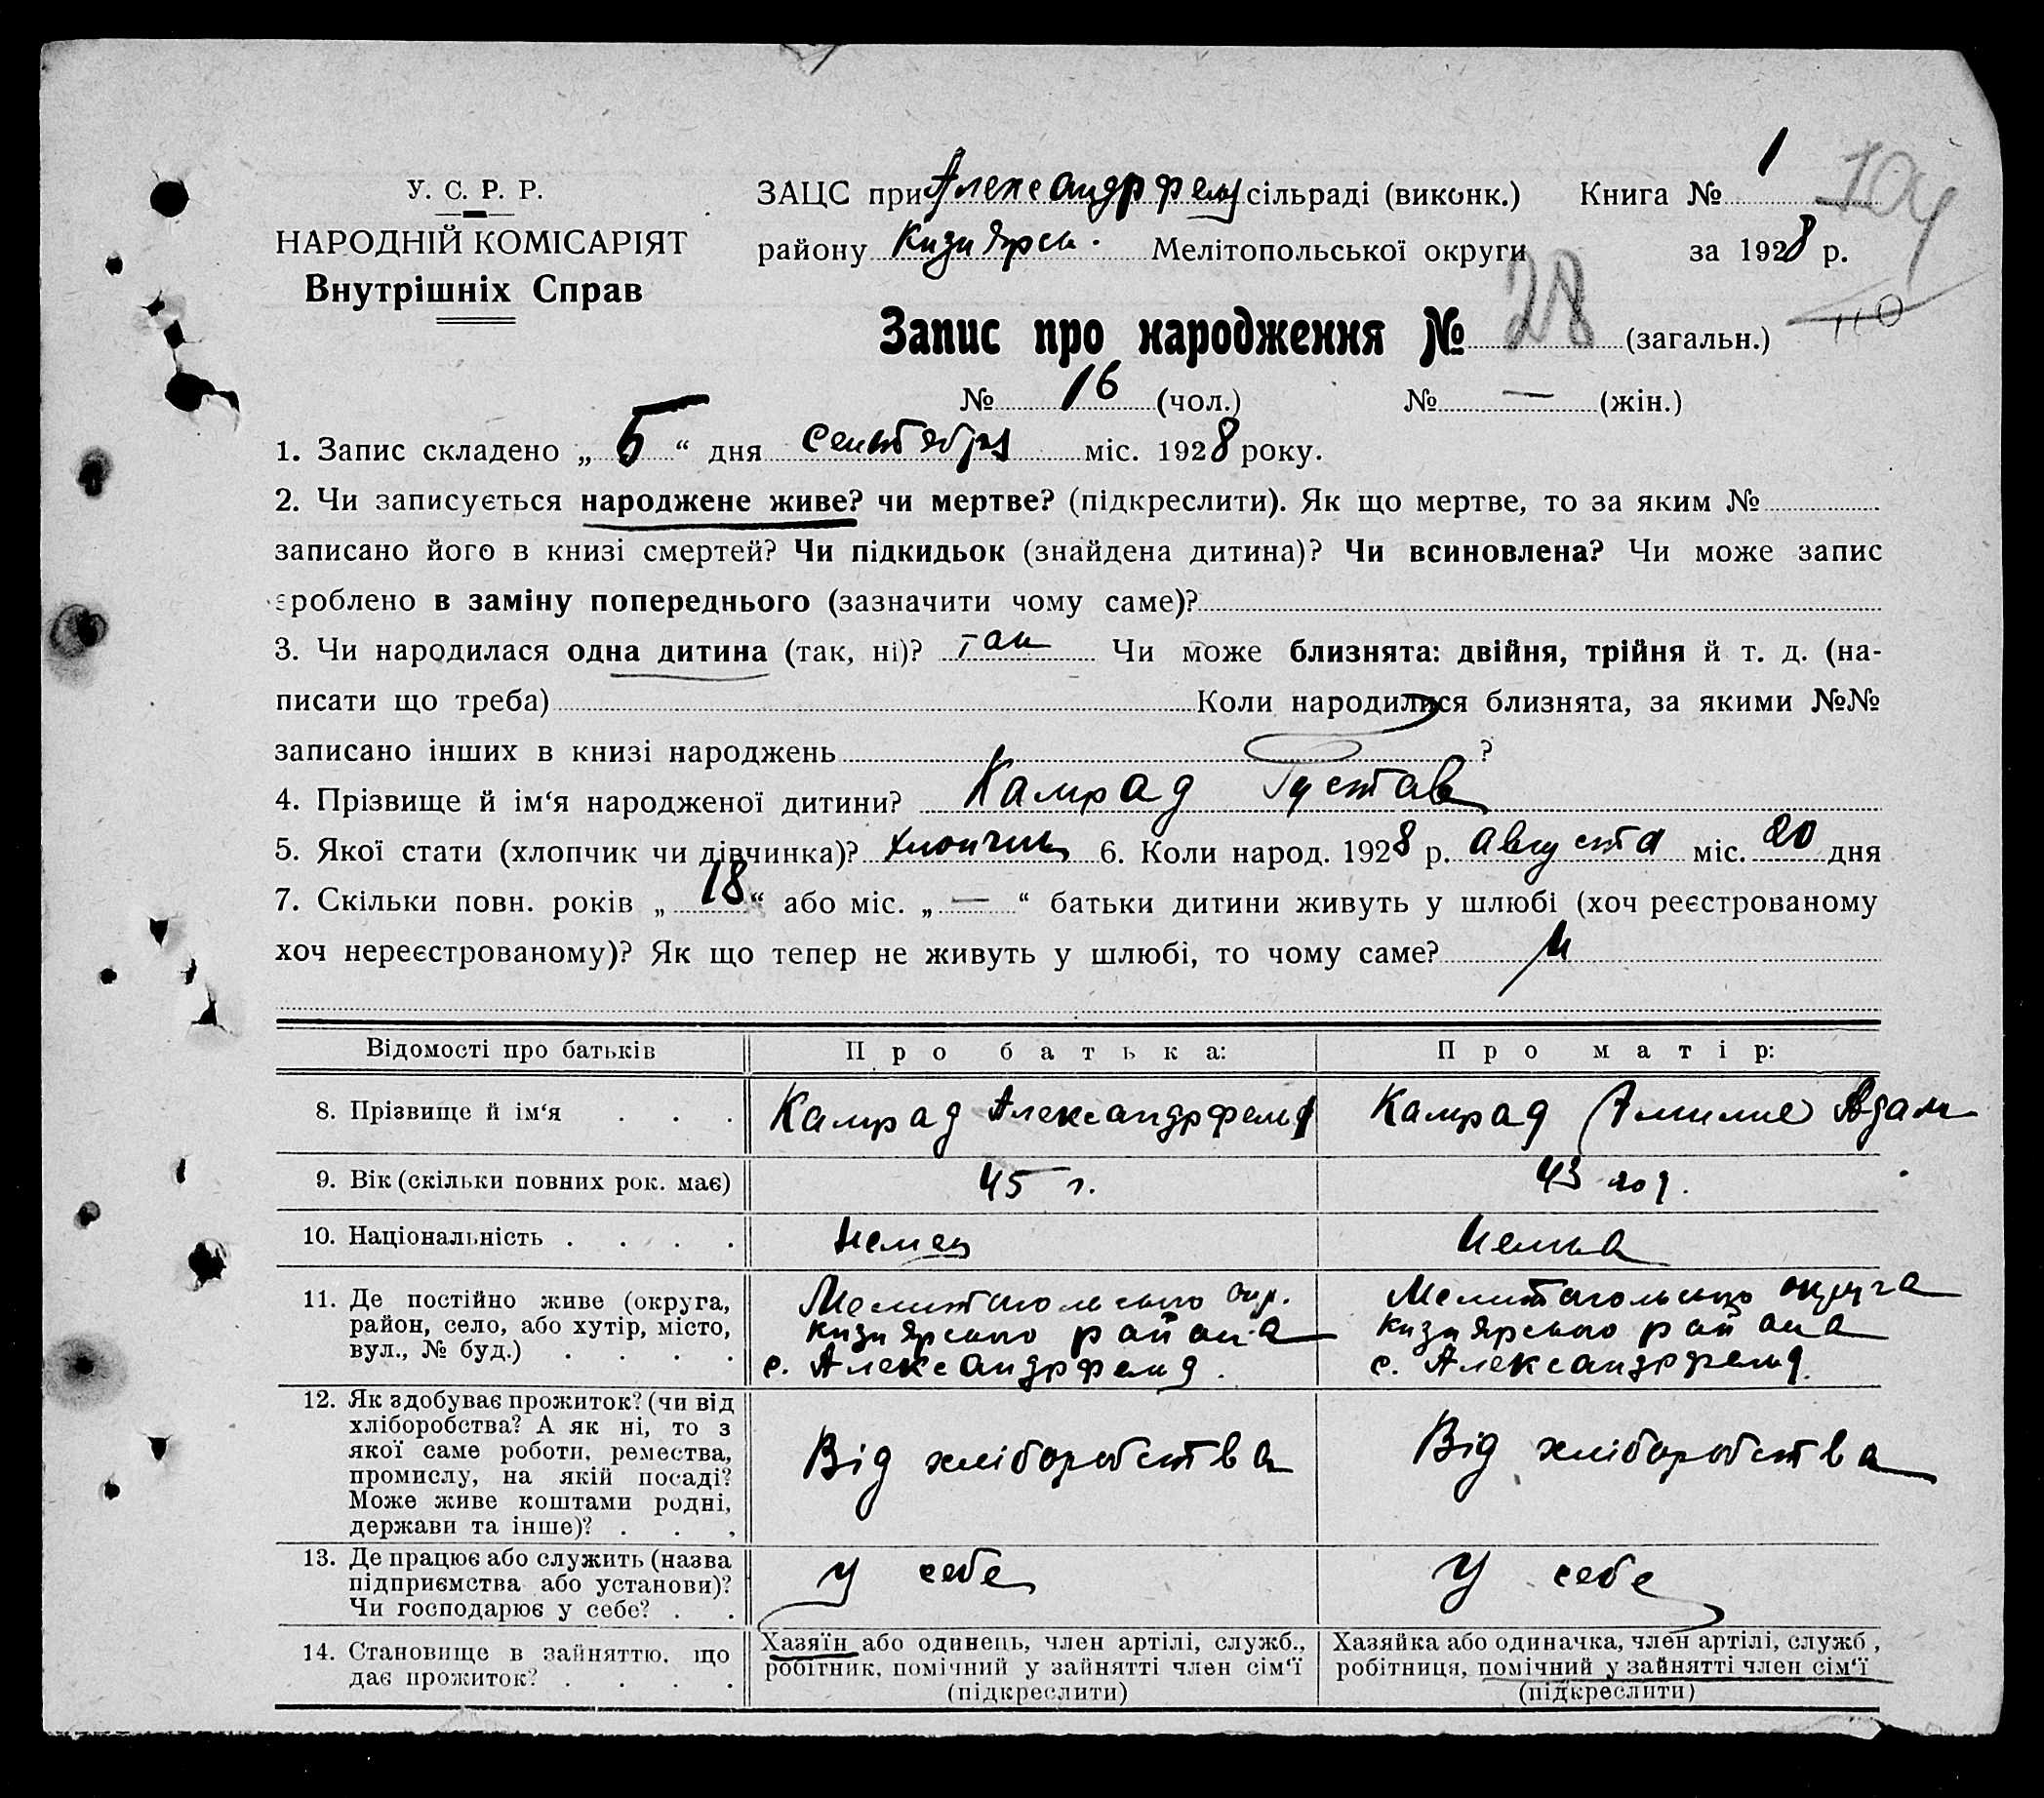 У. С. Р. Р.
НАРОДНІЙ КОМІСАРІЯТ
Внутрішніх Справ
ЗАЦС при Александрфельд сільраді (виконк.) Книга № 1
району Кизиярск. Мелітопольської округи за 1928 р.
104
110
Запис про народження № 28 (загальн.)
№ 16 (чол.) № — (жін.)
1. Запис складено „ 5 “ дня сентября міс. 1928 року.
2. Чи записується народжене живе? чи мертве? (підкреслити). Як що мертве, то за яким №
записано його в книзі смертей? Чи підкидьок (знайдена дитина)? Чи всиновлена? Чи може запис
зроблено в заміну попереднього (зазначити чому саме)?
3. Чи народилася одна дитина (так, ні)? так Чи може близнята: двійня, трійня й т. д. (на-
писати що треба) Коли народилися близнята, за якими №№
записано інших в книзі народжень ?
4. Прізвище й ім‘я народженої дитини? Камрад Густав
5. Якої стати (хлопчик чи дівчинка)? хлопчик 6. Коли народ. 1928 р. августа міс. 20 дня
7. Скільки повн. років „ 18 “ або міс. „ — “ батьки дитини живуть у шлюбі (хоч реєстрованому
хоч нереєстрованому)? Як що тепер не живуть у шлюбі, то чому саме?
Відомості про батьків Про батька: Про матір:
8. Прізвище й ім‘я . . . Камрад Александрфельд Камрад Эмилие Адам
9. Вік (скільки повних рок. має) 45 г. 43 год.
10. Національність . . . . Немец Немка
11. Де постійно живе (округа, район, село, або хутір, місто, вул., № буд.) . . . .
Мелитопольського окр.
Кизиярского района
с. Александрфельд.
Мелитопольського округа
Кизиярского района
с. Александрфельд.
12. Як здобуває прожиток? (чи від хліборобства? А як ні, то з якої саме роботи, ремества, промислу, на якій посаді? Може живе коштами родні, держави та інше)? . . .
Від хліборобства
Від хліборобства
13. Де працює або служить (назва підприємства або установи)? Чи господарює у себе? . .
У себе
У себе
14. Становище в зайняттю, що дає прожиток? . . . .
Хазяїн або одинець, член артілі, служб.,
робітник, помічний у зайнятті член сім‘ї
(підкреслити)
Хазяйка або одиначка, член артілі, служб,
робітниця, помічний у зайнятті член сім‘ї
(підкреслити)